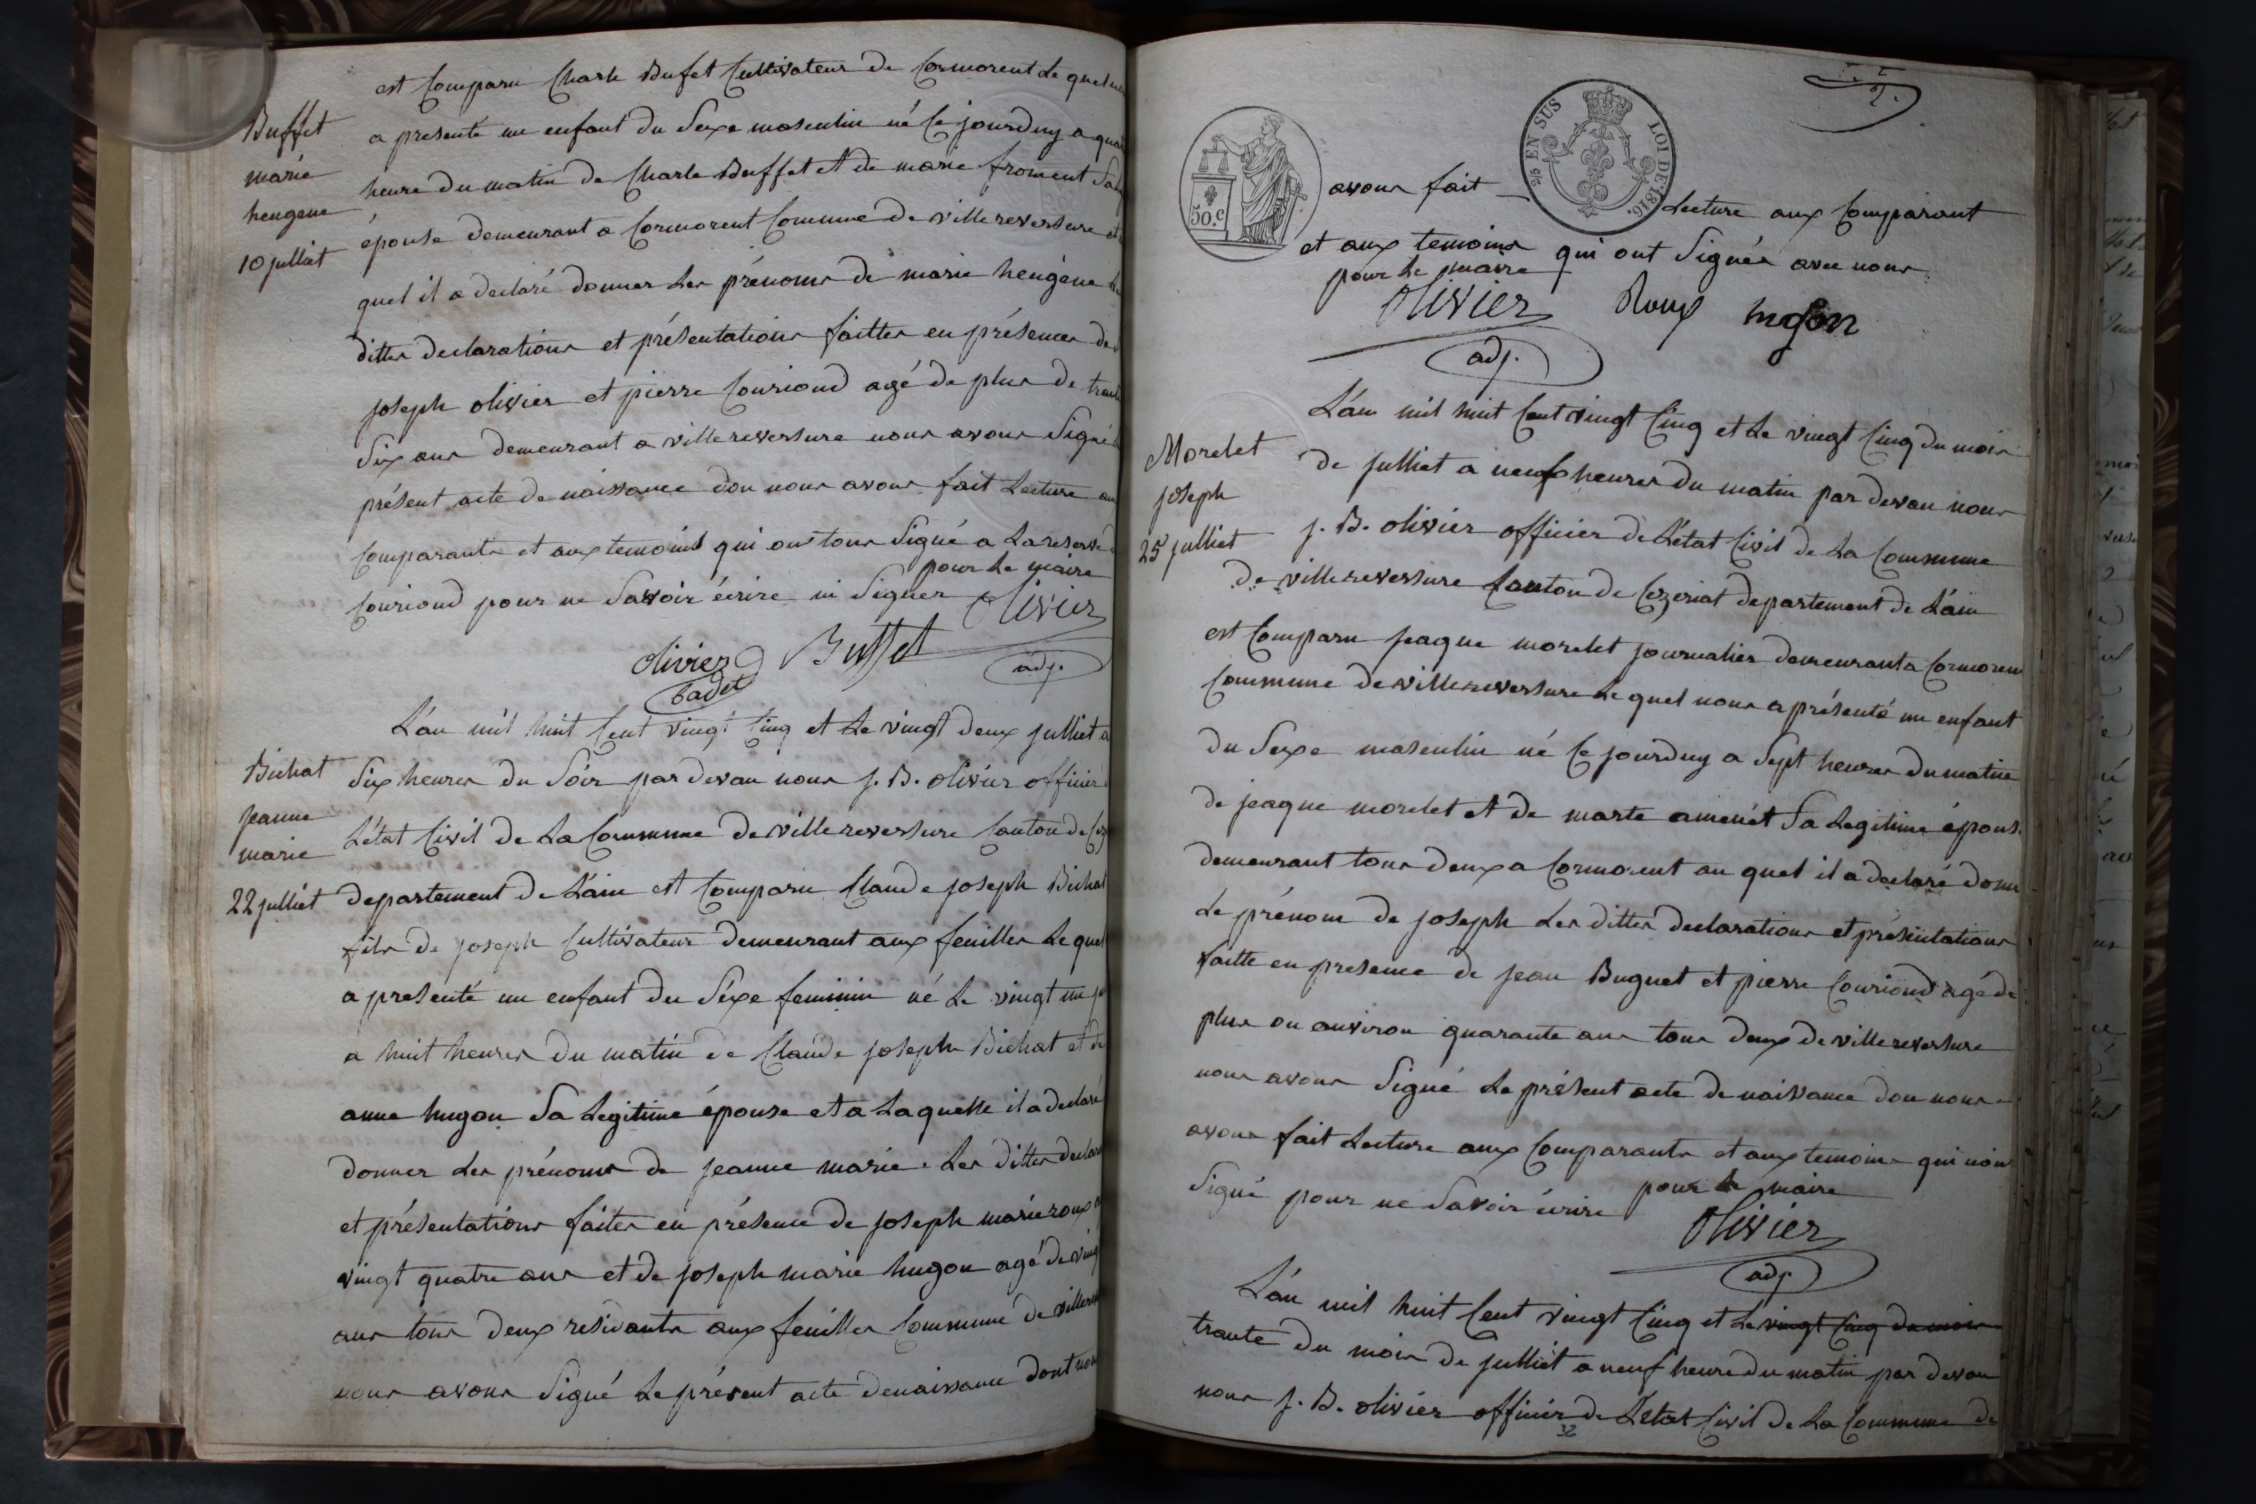 est Comparu Charle Bufet Cultivateur de Cormorent Le quel
Buffet
marie
heugene
10 julliet
a presenté un enfant du Sexe masculin né Ce jourduy a
heure du matin de Charle Buffet et de marie froment Sa
épouse demeurant a Cormorent Commune de villereversure
quel il a declaré donner Les prénoms de marie heugène
dittes declarations et présentations faittes en présences de
joseph olivier et pierre Couriond agé de plus de trante
Six ans demeurant a villereversure nous avons Signé
présent acte de naissance don nous avons fait Lecture
Comparants et aux temoins qui ons tous Signé a La reserve
Couriond pour ne Savoir écrire ni Signer
pour Le maire
olivier
adj.
olivier
Cadet
Buffet
L'an mil huit Cent vingt Cinq et Le vingt deux julliet a
Bichat
jeanne
marie
22 julliet
Six heures du Soir par devan nous j. B. olivier officier
L'état Civil de La Commune de villereversure Canton de
departement de L'ain est Comparu Claude joseph Bichat
fils de joseph Cultivateur demeurant aux feuilles Le quel
a presenté un enfant du Séxe feminin né Le vingt un
a huit heures du matin de Claude joseph Bichat et de
anne hugon Sa Legitime épouse et a Laquelle il a declaré
donner Les prénoms de jeanne marie. Les dittes
et présentations faites en présence de joseph marie roux
vingt quatre ans et de joseph marie hugon agé de
ans tous deux residants aux feuilles Commune de
nous avons Signé Le présent acte de naissance dont nous
2.
50.c
2/5 EN SUS
LOI DE 1816.
avons fait Lecture aux Comparant
et aux temoins qui ont Signés avec nous
pour Le maire
olivier
adj.
Roux
hugon
L'an mil huit Cent vingt Cinq et Le vingt Cinq du mois
Morelet
joseph
25 julliet
de julliet a neuf heures du matin par devan nous
j. B. olivier officier de L'état Civil de La Commune
de villereversure Canton de Cezeriat departement de L'ain
est Comparu jeaque morelet journalier demeurant a
Commune de villereversure Le quel nous a présenté un enfant
du Sexe masculin né Ce jourduy a Sept heures du matin
de jeaque morelet et de marte amenét Sa Legitime épouse
demeurant tous deux a Cormorent au quel il a declaré
Le prénom de joseph Les dittes declarations et présentations
faitte en presence de jean Buguet et pierre Couriond agé de
plus ou anviron quarante ans tous deux de villereversure
nous avons Signé Le présent acte de naissance don nous
avons fait Lecture aux Comparants et aux temoins qui nons
Signé pour ne Savoir écrire
pour Le maire
olivier
adj.
L'an mil huit Cent vingt Cinq et Le vingt Cinq du mois
trante du mois de julliét a neuf heure du matin par devan
nous j. B. olivier officier de L'état Civil de La Commune de